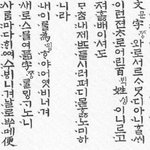 文문字ᄍᆞᆼ와로서르ᄉᆞᄆᆞᆺ디아니ᄒᆞᆯᄊᆡ
이런젼ᄎᆞ로어린百ᄇᆡᆨ姓셩이니르고
져홇배이셔도
ᄆᆞᄎᆞᆷ내제ᄠᅳ들시러펴디몯ᄒᆞᇙ노미하
니라
내이ᄅᆞᆯ爲윙ᄒᆞ야어엿비너겨
새로스믈여듧字ᄍᆞᆼᄅᆞᆯᄆᆡᇰᄀᆞ노니
사ᄅᆞᆷ마다ᄒᆡᅇᅧ수ᄫᅵ니겨날로ᄡᅮ메便